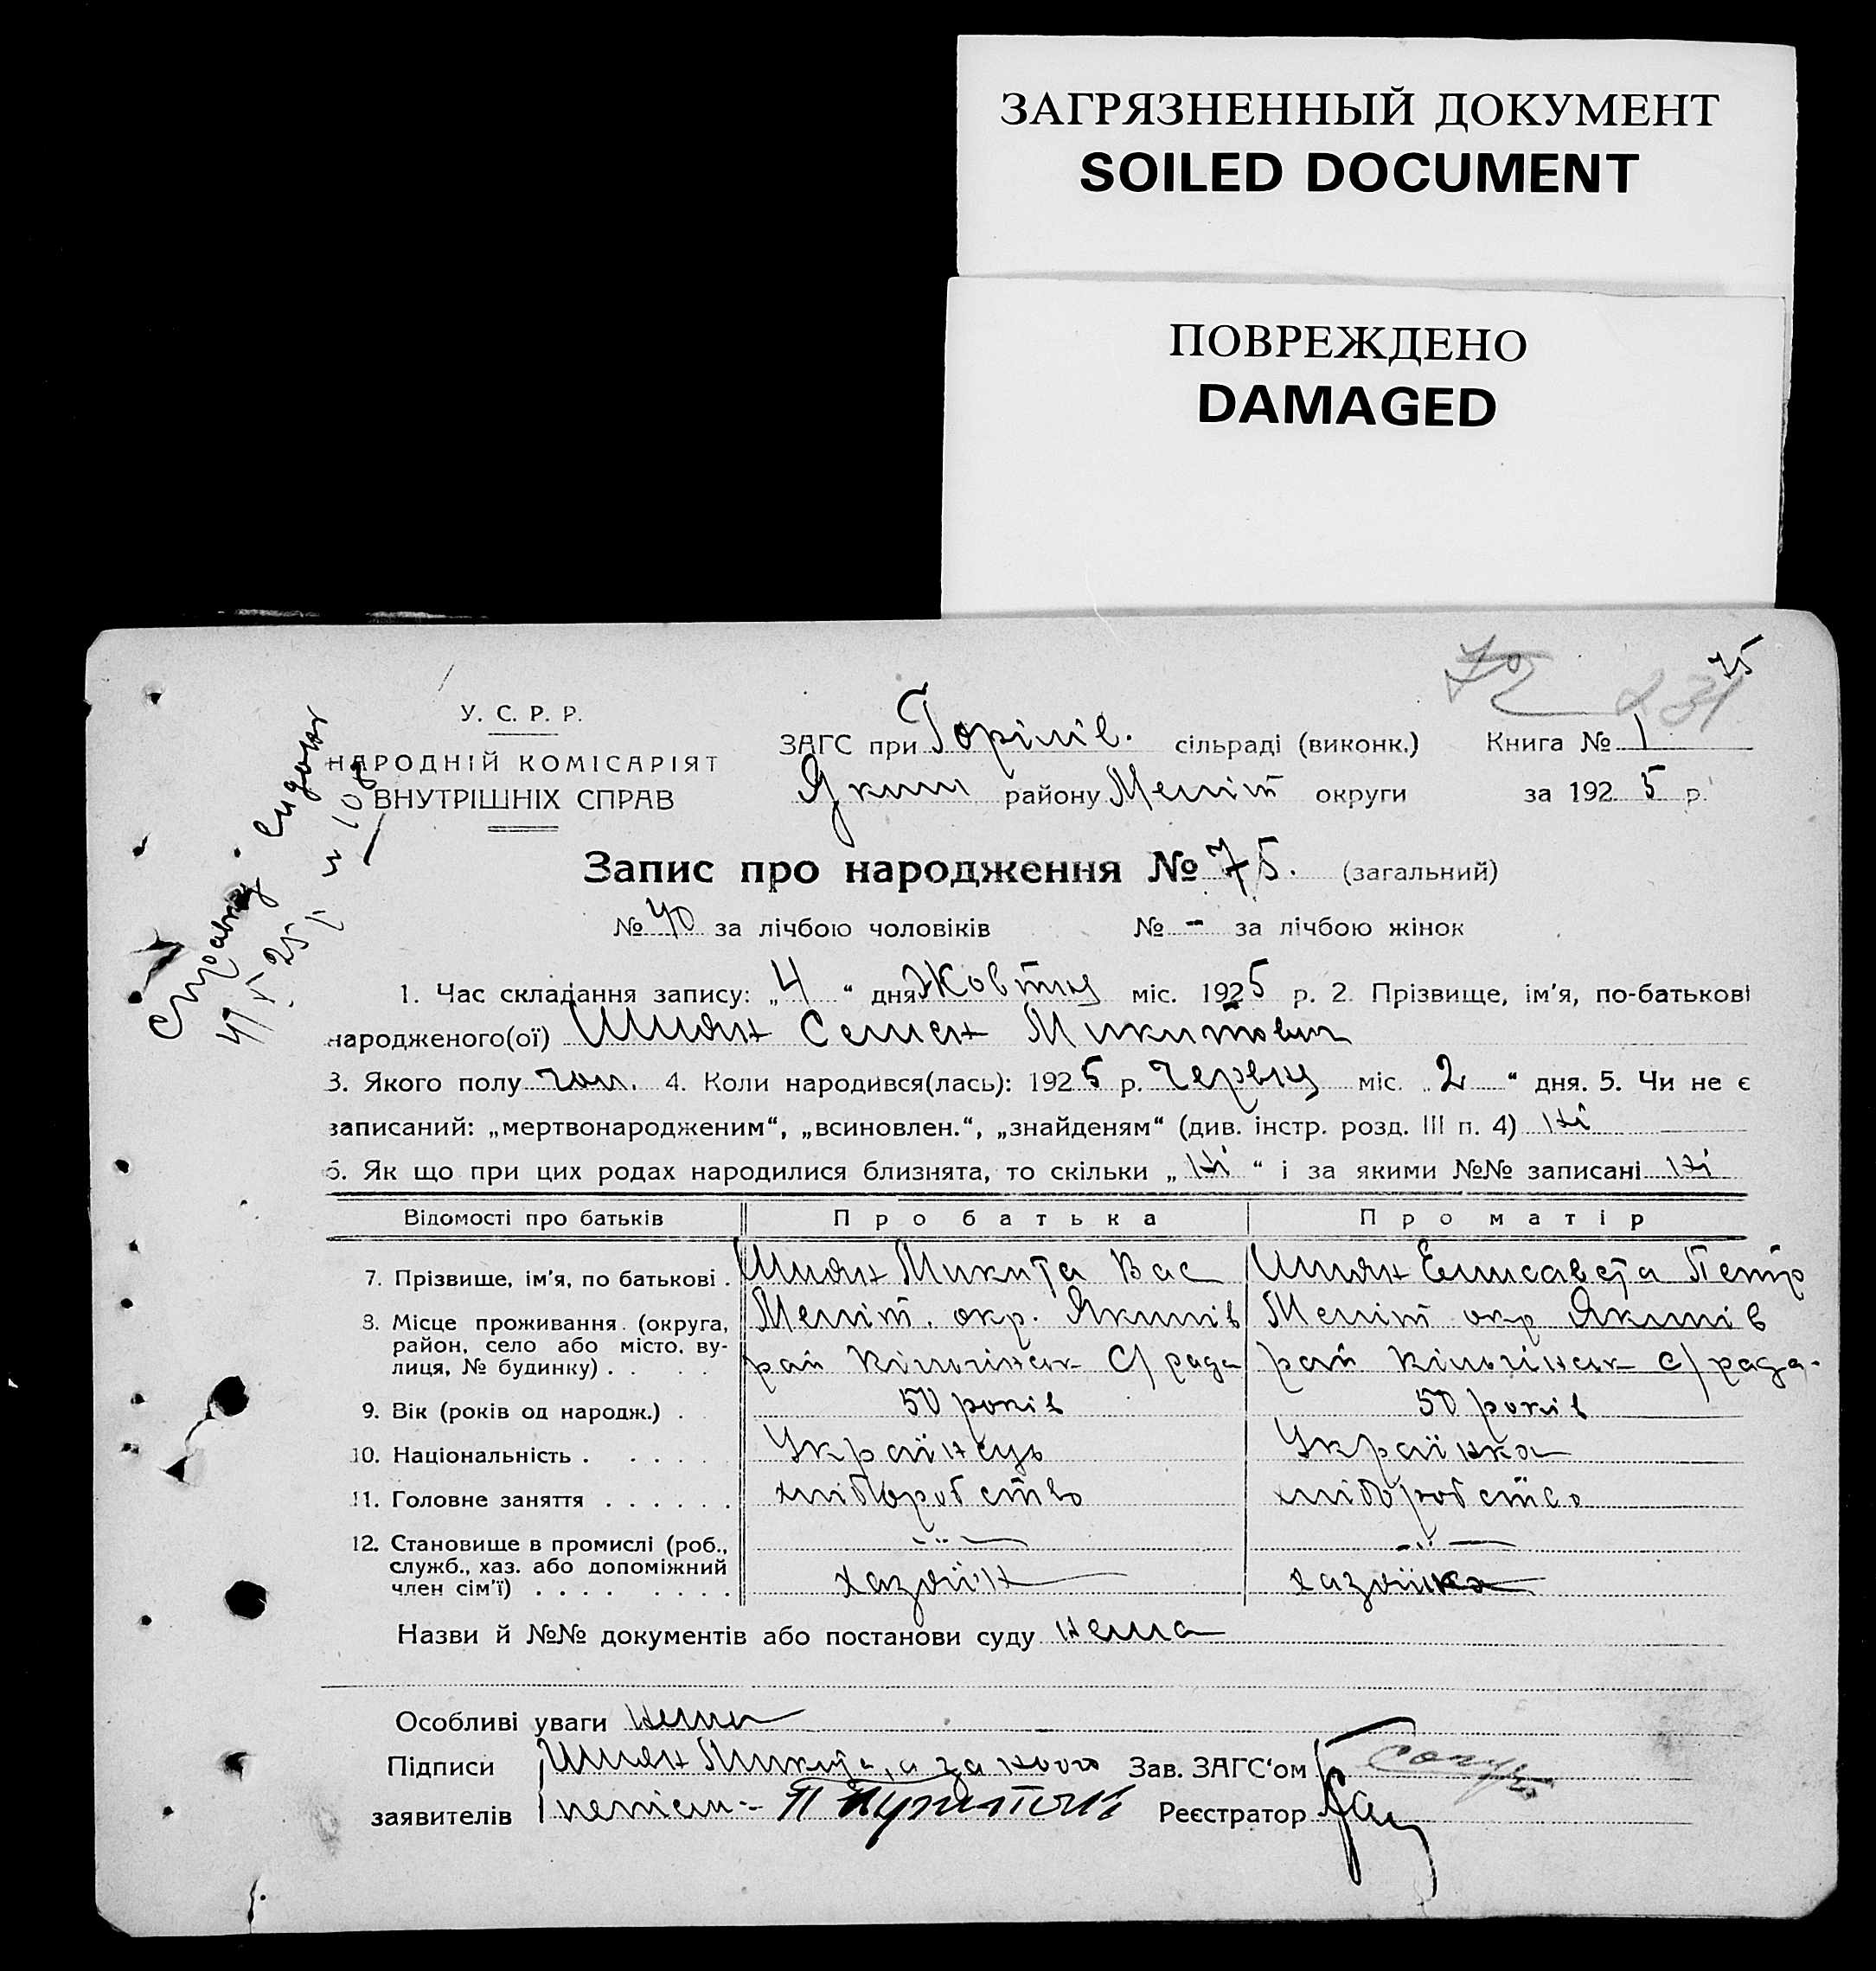 ЗАГРЯЗНЕННЫЙ ДОКУМЕНТ
SOILED DOCUMENT
ПОВРЕЖДЕНО
DAMAGED
75
72 231
У. С. Р. Р.
НАРОДНІЙ КОМІСАРІЯТ
ВНУТРІШНІХ СПРАВ
ЗАГС при Горілів. сільраді (виконк.) Книга № 1
Яким району Меліт округи за 1925 р.
Запис про народження № 75. (загальний)
№ 40 за лічбою чоловіків № - за лічбою жінок
1. Час складання запису: „4“ дня Жовтня міс. 1925 р. 2. Прізвище, ім'я, по-батькові
народженого(ої) Шиян Семен Микитович
3. Якого полу чол. 4. Коли народився(лась): 1925 р. Червня міс. 2 “ дня. 5. Чи не є
записаний: „мертвонародженим“, „всиновлен.“, „знайденям“ (див. інстр. розд. III п. 4) ні
6. Як що при цих родах народилися близнята, то скільки „ ні “ і за якими №№ записані ні
Відомості про батьків Про батька Про матір
7. Прізвище, ім'я, по батькові . Шиян Микита Вас Шиян Елисавета Петр
8. Місце проживання. (округа, район, село або місто, вулиця, № будинку) . . . . Меліт. окр. Якимів Меліт окр Якимів
рай С/рада рай с/рада.
9. Вік (років од народж.) . 50 років 50 років
10. Національність . . . . . . Українець Українка
11. Головне заняття . . . . . . хліборобство хліборобство
12. Становище в промислі (роб., служб., хаз. або допоміжний член сім'ї) . . . . . . . . хазяїн хазяйка
Назви й №№ документів або постанови суду нема
Особливі уваги нема
Підписи Шиян Микита, а за нього Зав. ЗАГС'ом
заявителів Реєстратор